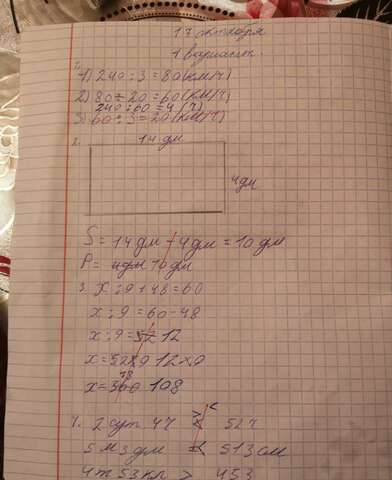 17 октября
1 вариант.
1.
1) 240 : 3 = 80 (км/ч)
2) 80 - 20 = 60 (км/ч)
240 : 60 = 4 (ч)
3) 60 : 3 = 20 (км/ч)
2.
14 дм
4 дм
S = 14 дм - 4 дм = 10 дм
P = 10 дм
3. х : 9 + 48 = 60
х : 9 = 60 - 48
х : 9 = 12
х = 12 × 9
х = 108
4. 2 сут 4ч < 52 ч
5 м 3 дм 513 см
4 т 53 кг > 453